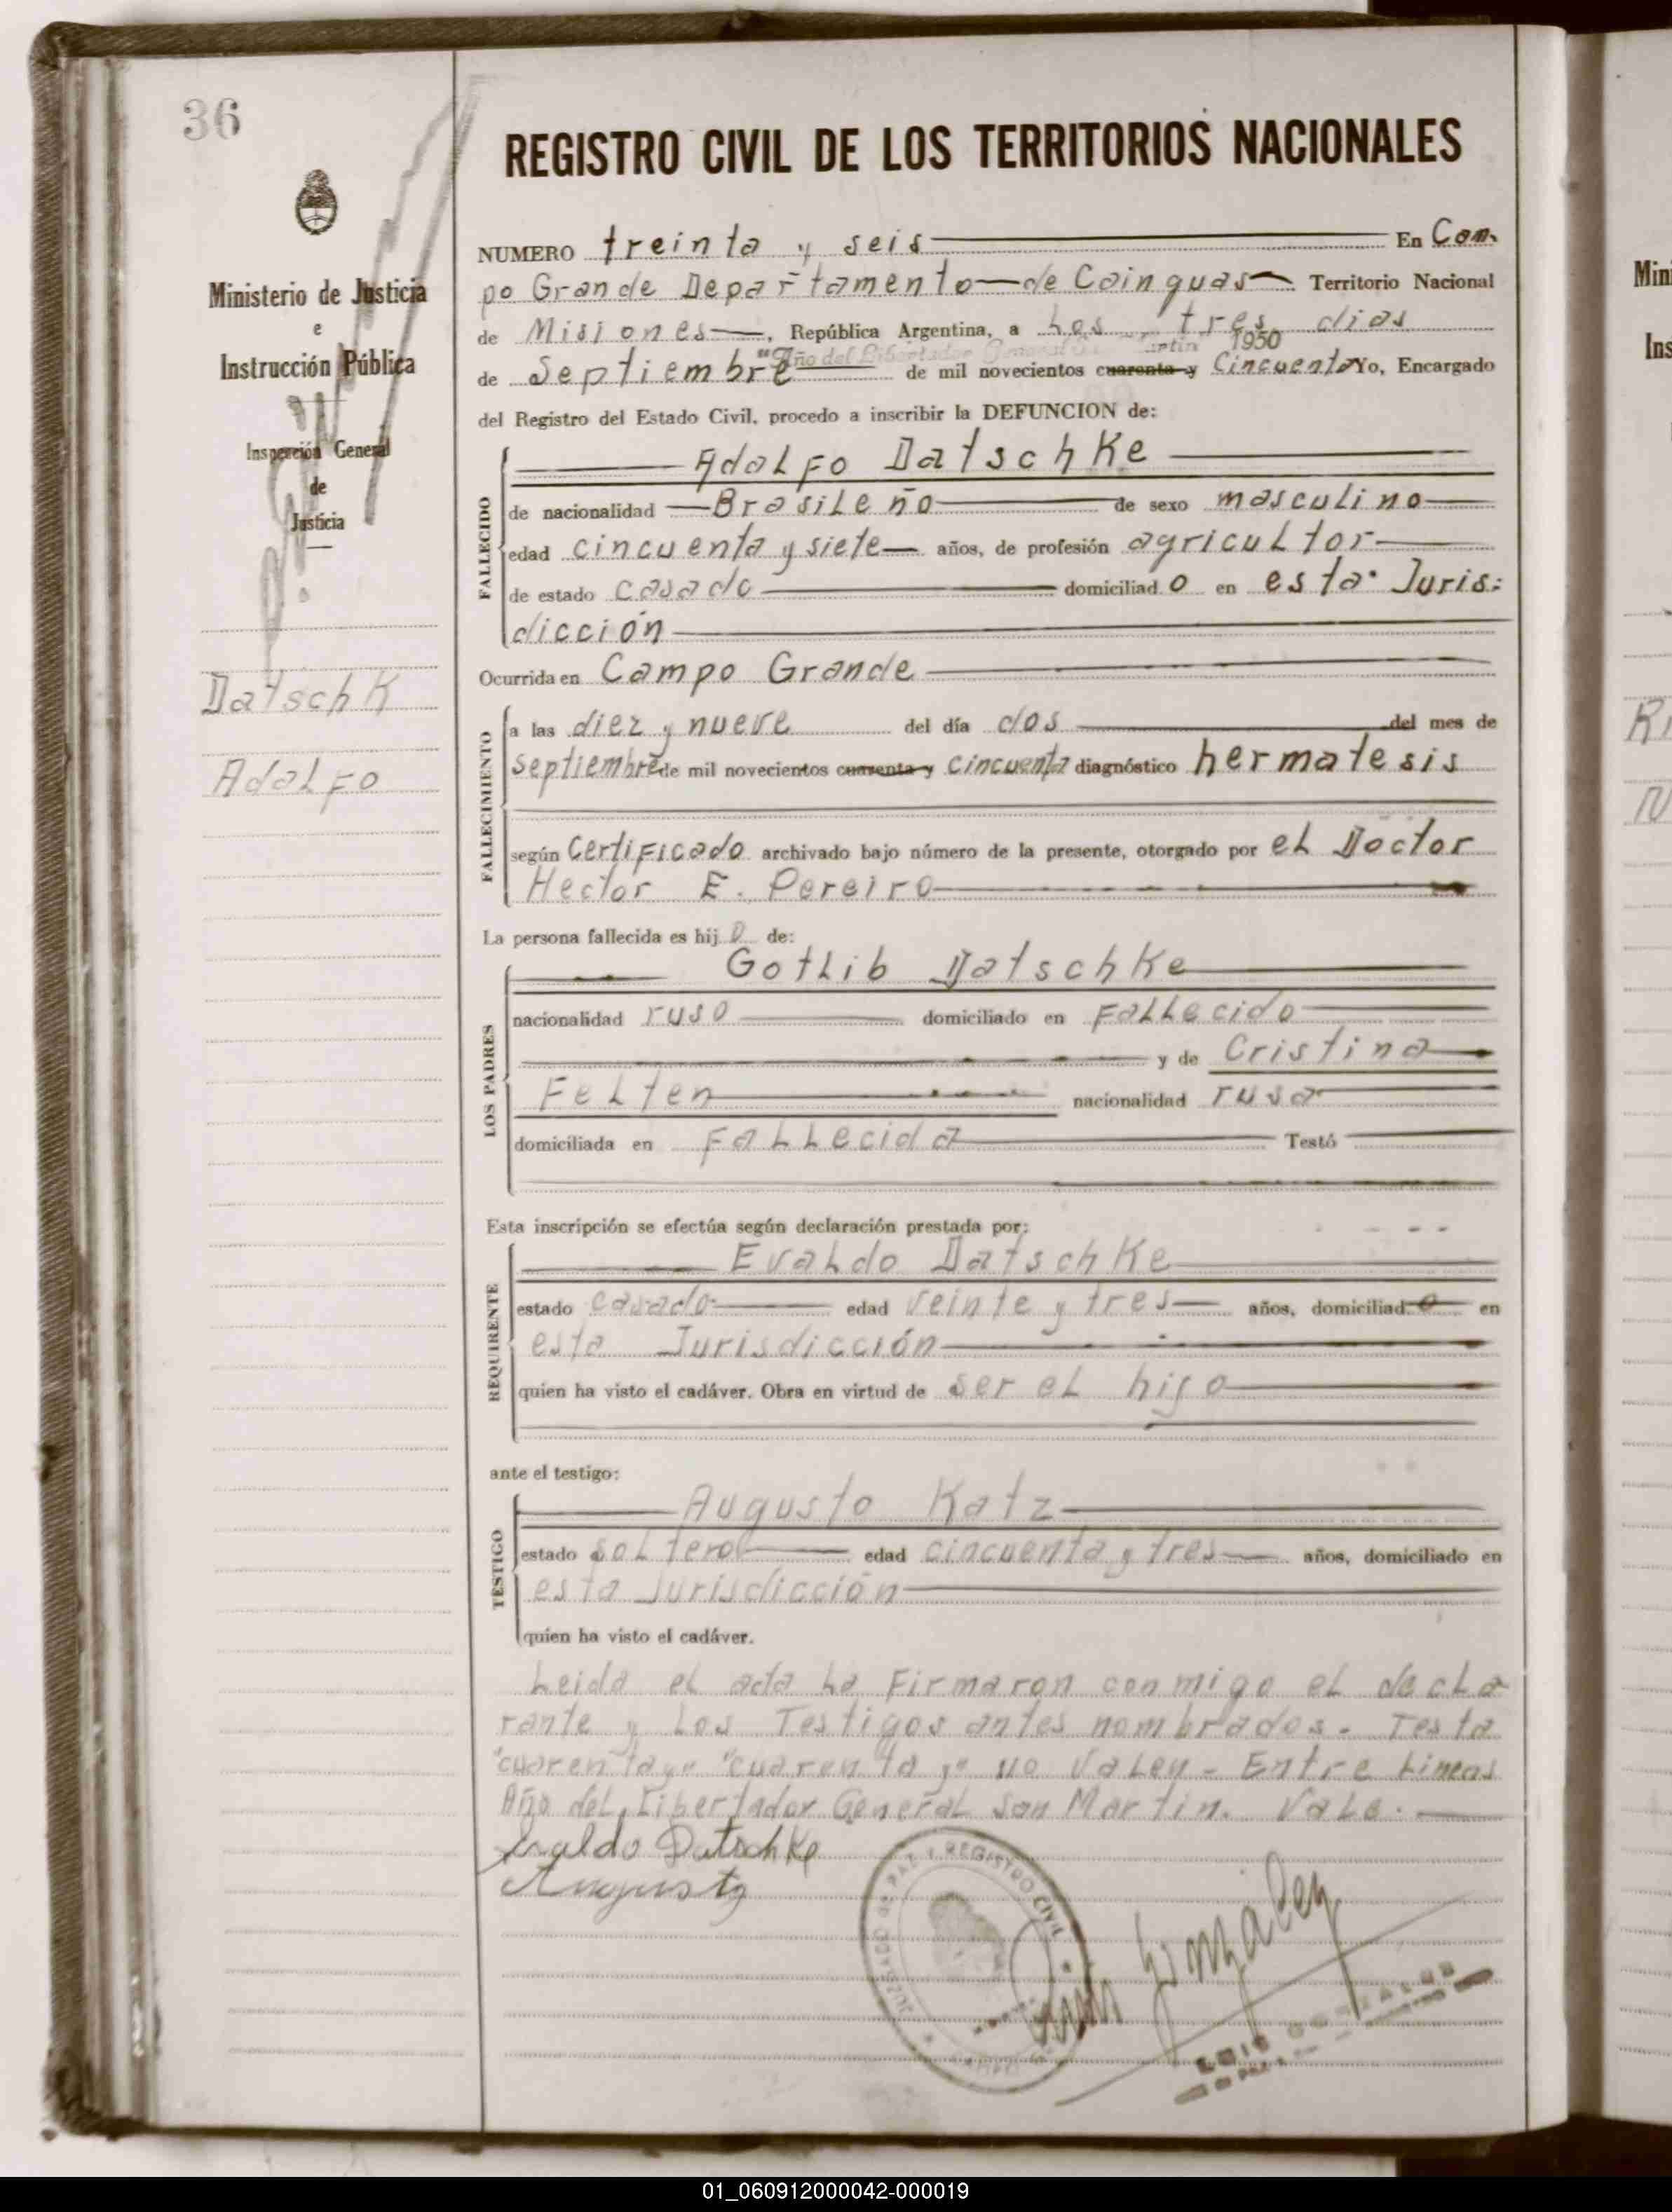 36
REGISTRO CIVIL DE LOS TERRITORIOS NACIONALES
Ministerio de Justicia
e
Instrucción Pública
Inspección General
de
Justicia
Datschk
Adolfo
NUMERO treinta y seis En Cam
po Grande Departamento de Cainguas Territorio Nacional
de Misiones, República Argentina, a los tres dias
"Año del Libertador General San Martin 1950
de Septiembre de mil novecientos cuarenta y Cincuenta Yo, Encargado
del Registro del Estado Civil, procedo a inscribir la DEFUNCION de:
FALLECIDO
Adolfo Datschke
de nacionalidad Brasileño de sexo masculino
edad cincuenta y siete años, de profesión agricultor
de estado casado domiciliado en esta Juris:
dicción
Ocurrida en Campo Grande
FALLECIMIENTO
a las diez y nueve del día dos del mes de
septiembre de mil novecientos cuarenta y cincuenta diagnóstico hermatesis
según Certificado archivado bajo número de la presente, otorgado por el Doctor
Hector E. Pereiro
La persona fallecida es hijo de:
LOS PADRES
Gotlib Datschke
nacionalidad ruso domiciliado en Fallecido
y de Cristina
Felten nacionalidad rusa
domiciliada en Fallecida Testó
Esta inscripción se efectúa según declaración prestada por:
REQUIRENTE
Evaldo Datschke
estado casado edad veinte y tres años, domiciliado en
esta Jurisdicción
quien ha visto el cadáver. Obra en virtud de ser el hijo
ante el testigo:
TESTIGO
Augusto Katz
estado soltero edad cincuenta y tres años, domiciliado en
esta Jurisdicción
quien ha visto el cadáver.
Leida el acta la Firmaron conmigo el decla
rante y los Testigos antes nombrados. Testa
"cuarenta y" "cuarenta y" no valen - Entre Lineas
Año del Libertador General San Martin. Vale.
Evaldo Datschke
Augusto
JUZGADO DE PAZ Y REGISTRO CIVIL
Luis Gonzalez
LUIS GONZALEZ
Mini
Ins
01_060912000042-000019